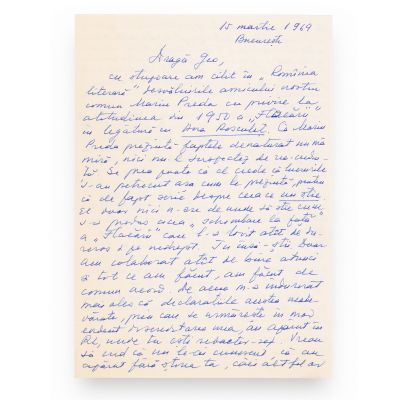 15 martie 1969
București
Dragă Geo,
cu stupoare am citit în „România
literară" dezvăluirile amicului nostru
comun Marin Preda cu privire la
atitudinea din 1950 a „Flacării"
în legătură cu Ana Roșculeț. Că Marin
Preda prezintă faptele denaturat nu mă
miră, nici nu-l suspectez de rea-credin-
ță. Se prea poate ca el crede că lucrurile
s-au petrecut așa cum le prezintă, pentru
că de fapt scrie despre ceea ce nu știe.
El doar nici n-are de unde să știe cum
s-a produs acea „schimbare la față"
a „Flacării" care l-a lovit atât de du-
reros și pe nedrept. Tu însă știi doar
am colaborat atât de bine atunci
și tot ce am făcut, am făcut de
comun acord. De aceea m-a îndurerat
mai ales că declarațiile acestea neade-
vărate, prin care se urmărește în mod
evident discreditarea mea, au apărut în
RL, unde tu ești redactor-șef. Vreau
să cred că nu le-ai cunoscut, că au
apărut fără știrea ta, căci altfel ar